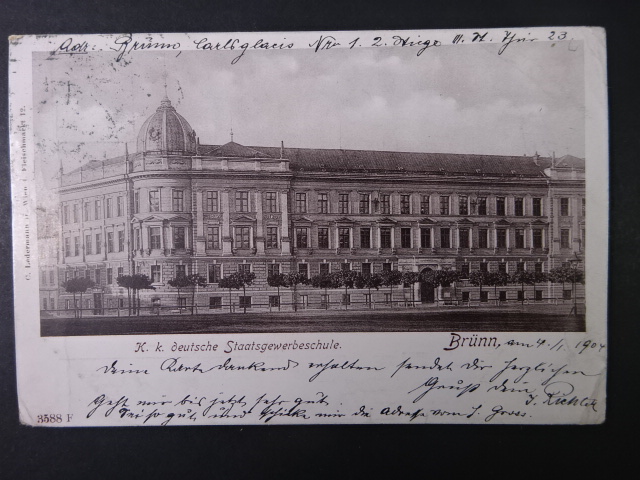 Adr: Brünn, Carlsglacis Nro 1. 2. Stiege III. St. Thür 23.
C. Ledermann jr. Wien I. Fleischmarkt 12.
K. k. deutsche Staatsgewerbeschule.
Brünn, am 4./1. 1904
Deine Karte dankend erhalten sendet dir herzlichen
Gruß dein
Geht mir bis jetzt sehr gut.
Sei so gut und schicke mir die Adresse vom J. Gross.
3588 F